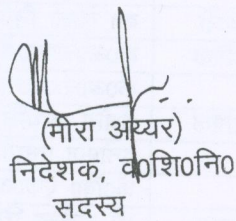 (मीरा अय्यर)
निदेशक, व0शि0नि0
सदस्य